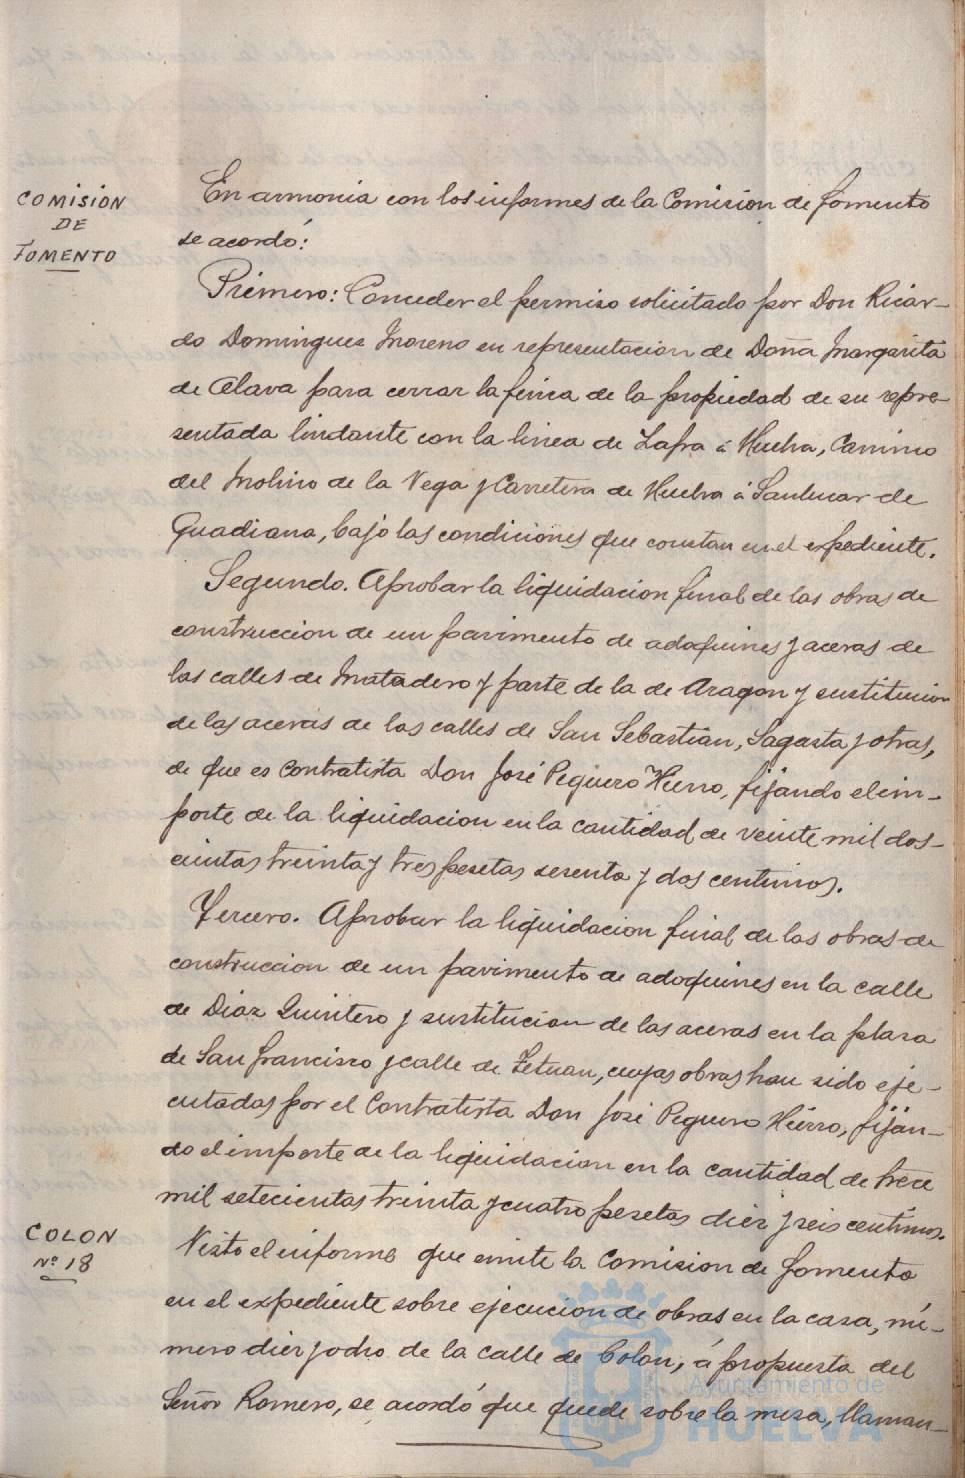 COMISIÓN
DE
FOMENTO
En armonia con los informes de la Comision de fomento
se acordó:
Primero: Conceder el permiso solicitado por Don Ricar-
do Domingues Moreno en representacion de Doña Margarita
de Alava para cerrar la finca de la propiedad de su repre-
sentada lindante con la linea de Zafra á Huelva, Camino
del Molino de la Vega y Carretera de Huelva á Sanlucar de
Guadiana, bajo las condiciones que constan en el expediente.
Segundo. Aprobar la liquidacion final de las obras de
construccion de un pavimento de adoquines y aceras de
las calles de Matadero y parte de la de Aragon y sustitucion
de las aceras de las calles de San Sebastian, Sagasta y otras,
de que es contratista Don José Peguero Hierro, fijando el im-
porte de la liquidacion en la cantidad de veinte mil dos-
cientas treinta y tres pesetas sesenta y dos centimos.
Tercero. Aprobar la liquidacion final de las obras de
construccion de un pavimento de adoquines en la calle
de Diaz Quintero y sustitucion de las aceras en la plaza
de San Francisco y calle de Tetuan, cuyas obras han sido eje-
cutadas por el Contratista Don José Peguero Hierro, fijan-
do el importe de la liquidacion en la cantidad de trece
mil setecientas treinta y cuatro pesetas diez y seis centimos.
COLON
Nº 18
Visto el informe que emite la Comision de fomento
en el expediente sobre ejecucion de obras en la casa, nú-
mero diez y ocho de la calle de Colon, á propuesta del
Señor Romero, se acordó que quede sobre la mesa, llaman-
Ayuntamiento de
HUELVA